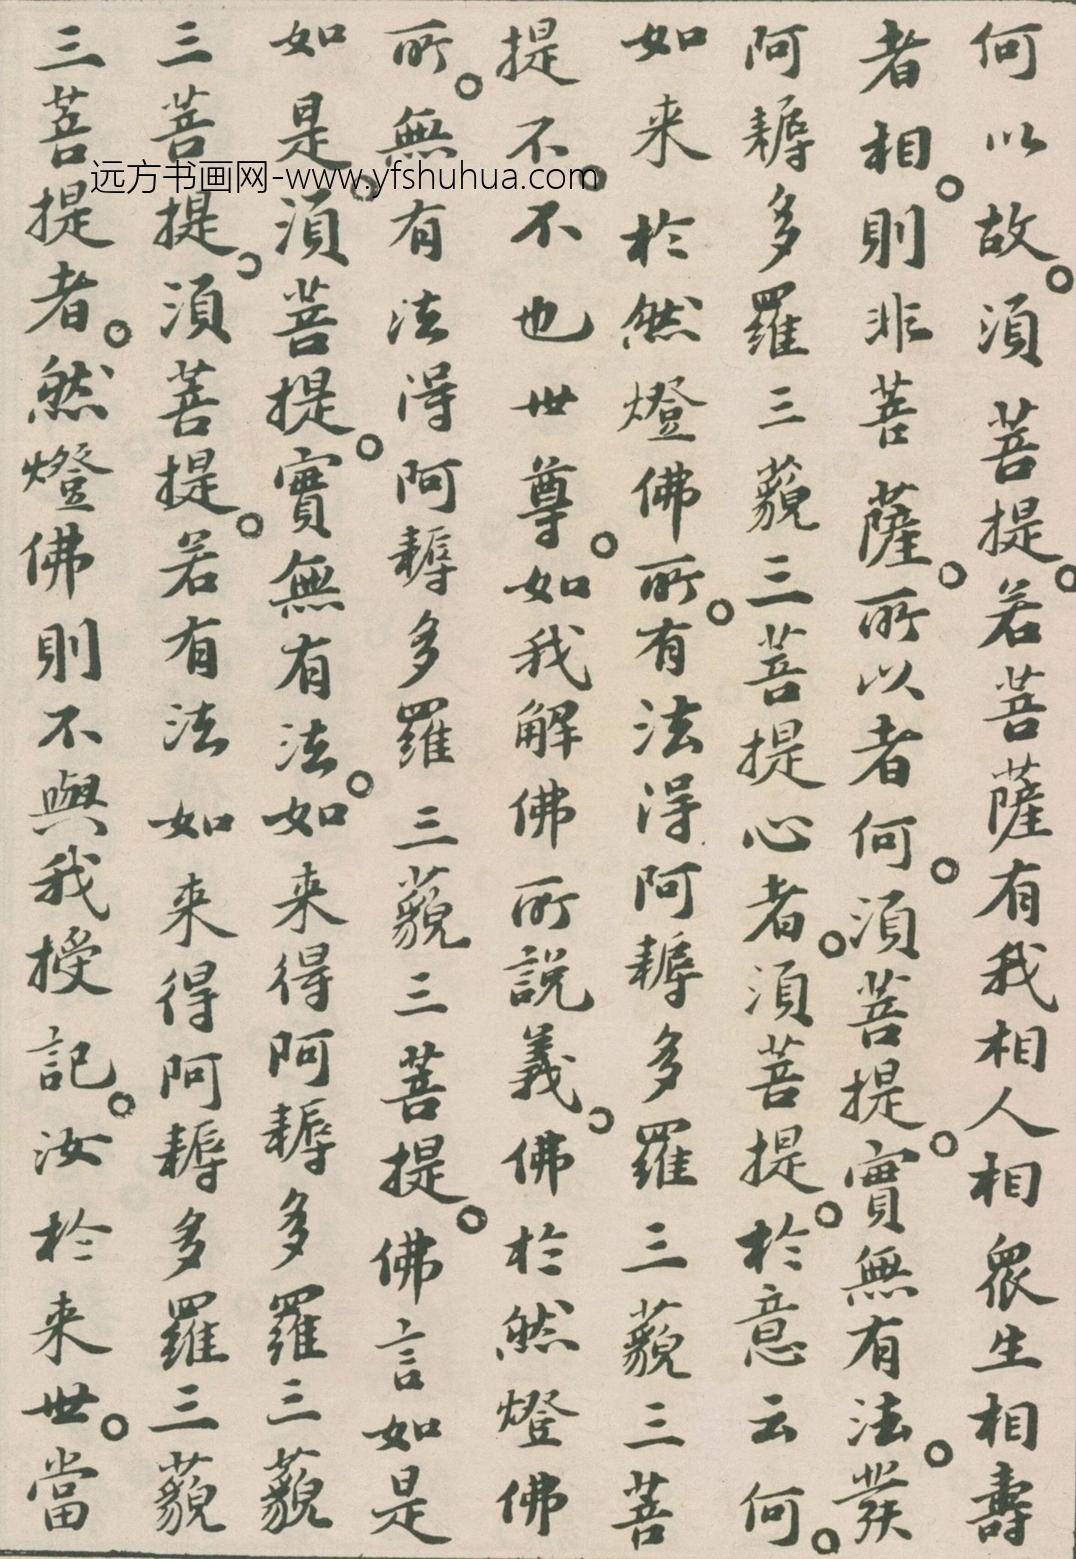 何以故。須菩提。若菩薩有我相人相眾生相壽
者相。則非菩薩。所以者何。須菩提。實無有法。發
阿耨多羅三藐三菩提心者。須菩提。於意云何。
如来於然燈佛所。有法得阿耨多羅三藐三菩
提不。不也世尊。如我解佛所説義。佛於然燈佛
所。無有法得阿耨多羅三藐三菩提。佛言如是
如是。須菩提。實無有法。如来得阿耨多羅三藐
三菩提。須菩提。若有法如来得阿耨多羅三藐
三菩提者。然燈佛則不與我授記。汝於来世。當
远方书画网-www.yfshuhua.com